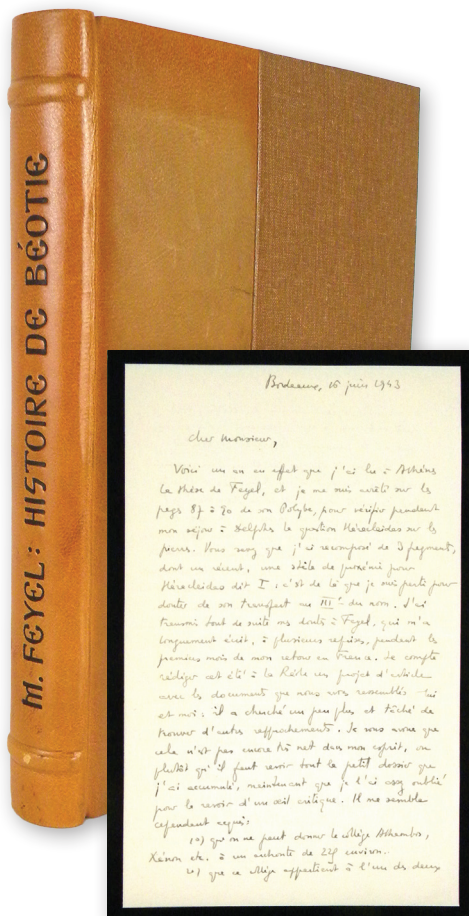 M. FEYEL: HISTOIRE DE BÉOTIE
Bordeaux, 16 juin 1943
Cher Monsieur,
Voici un an en effet que j'ai lu à Athènes
la thèse de Feyel, et je me suis arrêté sur les
pages 87 à 90 de son Polybe, pour vérifier pendant
mon séjour à Delphes la question Héracleidas sur les
pierres. Vous savez que j'ai recomposé de 3 fragments,
dont un récent, une stèle de proxénie pour
Héracleidas dit I: c'est de là que je suis parti pour
douter de son transfert au IIIe du nom. J'ai
transmis tout de suite mes doutes à Feyel, qui m'a
longuement écrit, à plusieurs reprises, pendant les
premiers mois de mon retour en France. Je compte
rédiger cet été à la Réole un projet d'article
avec les documents que nous avons rassemblés lui
et moi; il a cherché un peu plus et tâché de
trouver d'autres rapprochements. Je vous avoue que
cela n'est pas encore très net dans mon esprit, ou
plutôt qu'il faut revoir tout le petit dossier que
j'ai accumulé, maintenant que je l'ai assez oublié
pour le revoir d'un œil critique. Il me semble
cependant acquis,
1o) que on ne peut donner le collège Athambos,
Xénon etc. à un archonte de 225 environ.
2o) que ce collège appartient à l'un des deux